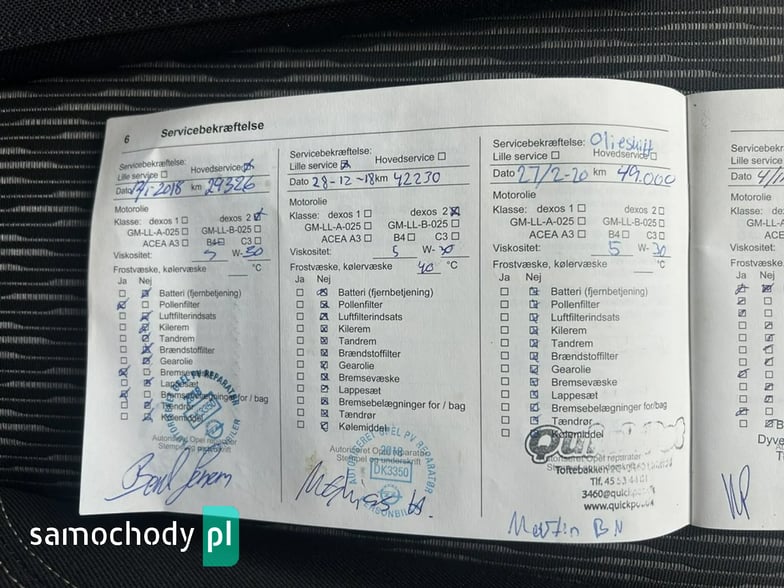 6 Servicebekræftelse
Servicebekræftelse:
Lille service ☐ Hovedservice ☒
Dato 1-2018 km 29326
Motorolie
Klasse: dexos 1 ☐ dexos 2 ☒
GM-LL-A-025 ☐ GM-LL-B-025 ☐
ACEA A3 ☐ B4 ☐ C3 ☐
Viskositet: 5 W-30
Frostvæske, kølervæske °C
Ja Nej
Batteri (fjernbetjening)
Pollenfilter
Luftfilterindsats
Kilerem
Tandrem
Brændstoffilter
Gearolie
Bremsevæske
Lappesæt
Bremsebelægninger for / bag
Tændrør
Kølemiddel
Autoriseret Opel reparatør
Stempel og underskrift
Servicebekræftelse:
Lille service ☒ Hovedservice ☐
Dato 28-12-18 km 42230
Motorolie
Klasse: dexos 1 ☐ dexos 2 ☒
GM-LL-A-025 ☐ GM-LL-B-025 ☐
ACEA A3 ☐ B4 ☐ C3 ☐
Viskositet: 5 W-30
Frostvæske, kølervæske 40 °C
Ja Nej
Batteri (fjernbetjening)
Pollenfilter
Luftfilterindsats
Kilerem
Tandrem
Brændstoffilter
Gearolie
Bremsevæske
Lappesæt
Bremsebelægninger for / bag
Tændrør
Kølemiddel
Autoriseret Opel reparatør
Stempel og underskrift
AUTORISERET OPEL PV REPARATØR
2018
DK3350
PERSONBIL
Servicebekræftelse: Olieskift
Lille service ☐ Hovedservice ☐
Dato 27/2-20 km 49.000
Motorolie
Klasse: dexos 1 ☐ dexos 2 ☐
GM-LL-A-025 ☐ GM-LL-B-025 ☐
ACEA A3 ☐ B4 ☐ C3 ☐
Viskositet: 5 W-30
Frostvæske, kølervæske °C
Ja Nej
Batteri (fjernbetjening)
Pollenfilter
Luftfilterindsats
Kilerem
Tandrem
Brændstoffilter
Gearolie
Bremsevæske
Lappesæt
Bremsebelægninger for/bag
Tændrør
Kølemiddel
Autoriseret Opel reparatør
Toftebakken
Tlf. 45
www.quickpo
Martin B N
Lille service
Dato
Motorolie
Klasse:
Viskositet:
Frostvæske,
Ja Nej
samochody pl